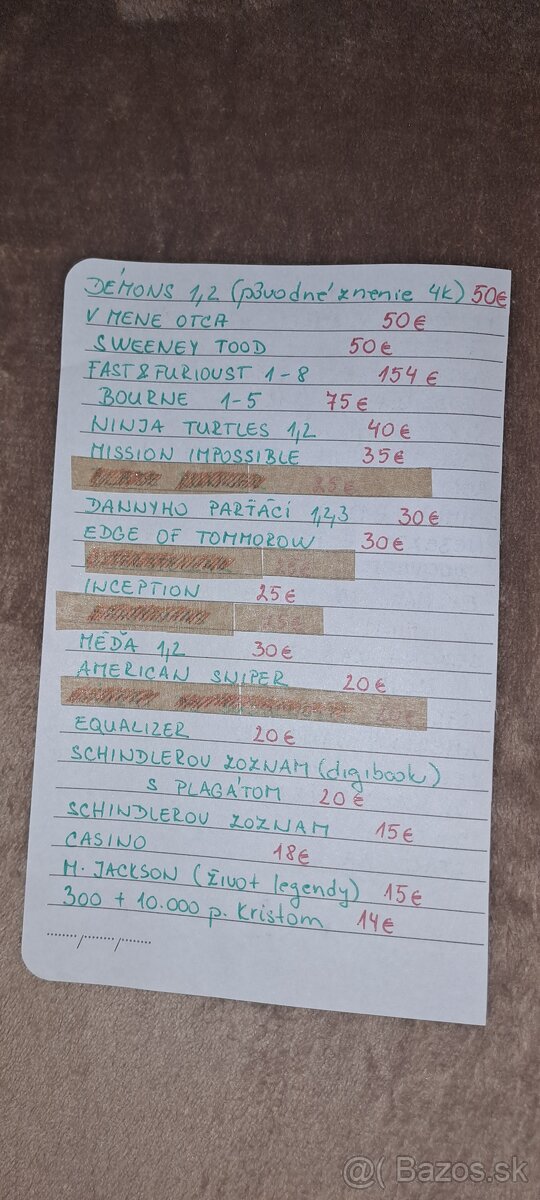 DÉMONS 1,2 (p3vodné znenie 4k) 50€
V MENE OTCA 50€
SWEENEY TOOD 50€
FAST & FURIOUST 1-8 154€
BOURNE 1-5 75€
NINJA TURTLES 1,2 40€
MISSION IMPOSSIBLE 35€
25€
DANNYHO PARŤÁCI 1,2,3 30€
EDGE OF TOMMOROW 30€
INCEPTION 25€
MÉĎA 1,2 30€
AMERICAN SNIPER 20€
20€
EQUALIZER 20€
SCHINDLEROV ZOZNAM (digibook)
S PLAGÁTOM 20€
SCHINDLEROV ZOZNAM 15€
CASINO 18€
M. JACKSON (ŽIVOT legendy) 15€
300 + 10.000 p. Kristom 14€
......../......../........
@( Bazos.sk